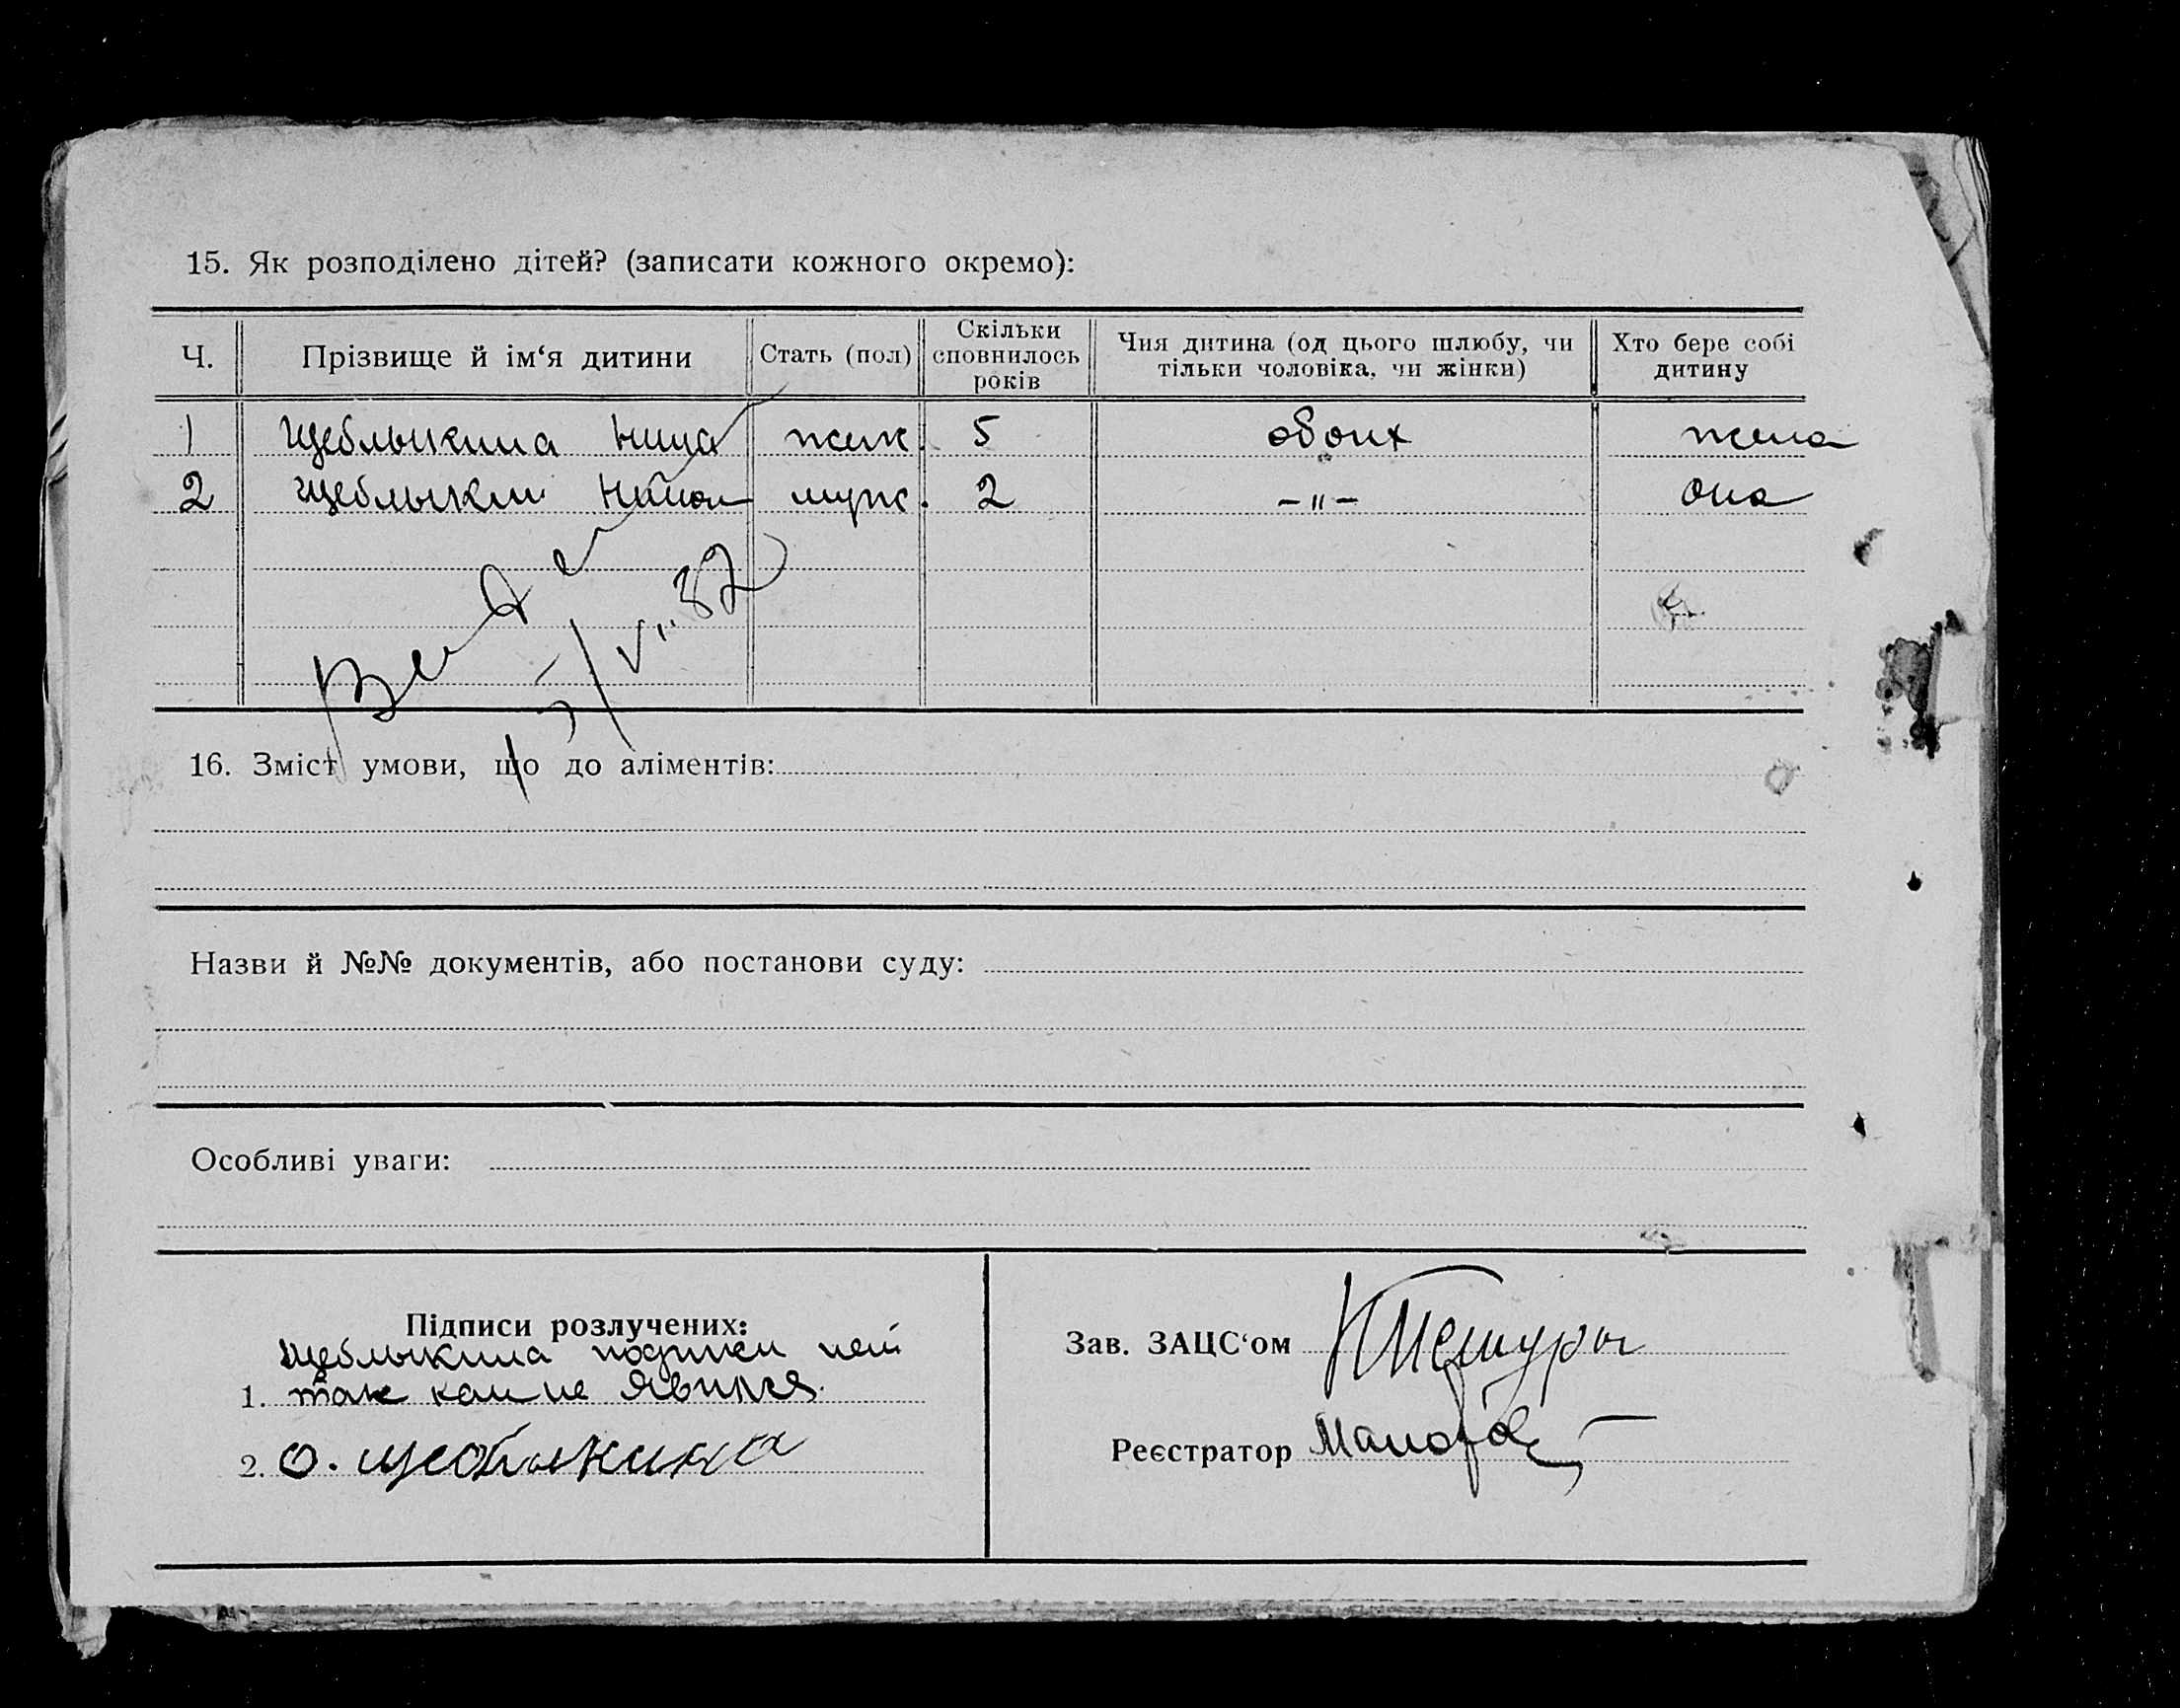 15. Як розподілено дітей? (записати кожного окремо):
Ч. Прізвище й ім‘я дитини Стать (пол) Скільки сповнилось років Чия дитина (од цього шлюбу, чи тільки чоловіка, чи жінки) Хто бере собі дитину
1 Щеблыкина Нина жен. 5 обоих жена
2 Щеблыкин муж. 2 -〃- она
16. Зміст умови, що до аліментів:
Назви й №№ документів, або постанови суду:
Особливі уваги:
Підписи розлучених:
Щеблыкина подписи нет
1. так как не явился.
2. О. Щеблыкина
Зав. ЗАЦС‘ом
Реєстратор